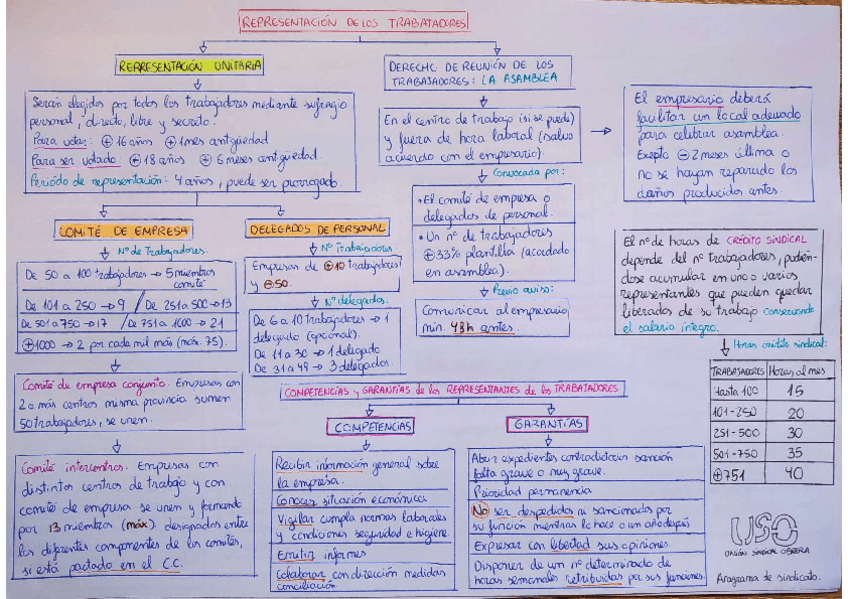 REPRESENTACIÓN DE LOS TRABAJADORES
REPRESENTACIÓN UNITARIA
Serán elegidos por todos los trabajadores mediante sufragio
personal, directo, libre y secreto.
Para votar: ⊕ 16 años ⊕ 1 mes antigüedad
Para ser votado: ⊕ 18 años ⊕ 6 meses antigüedad.
Período de representación: 4 años, puede ser prorrogado.
COMITÉ DE EMPRESA
Nº de Trabajadores.
De 50 a 100 trabajadores → 5 miembros
comité
De 101 a 250 → 9 / De 251 a 500 → 13
De 501 a 750 → 17 / De 751 a 1000 → 21
⊕1000 → 2 por cada mil más (máx. 75).
Comité de empresa conjunto. Empresas con
2 o más centros misma provincia sumen
50 trabajadores, se unen.
Comité intercentros. Empresas con
distintos centros de trabajo y con
comité de empresa se unen y formando
por 13 miembros (máx) designados entre
los diferentes componentes de los comités,
si está pactado en el C.C.
DELEGADOS DE PERSONAL
Nº Trabajadores:
Empresas de ⊕10 trabajadores
y ⊖50.
Nº delegados.
De 6 a 10 trabajadores → 1
delegado (opcional).
De 11 a 30 → 1 delegado
De 31 a 49 → 3 delegados.
DERECHO DE REUNIÓN DE LOS
TRABAJADORES: LA ASAMBLEA
En el centro de trabajo (si se puede)
y fuera de hora laboral (salvo
acuerdo con el empresario)
Convocada por:
• El comité de empresa o
delegados de personal.
• Un nº de trabajadores
⊕33% plantilla (acordado
en asamblea).
Previo aviso:
Comunicar al empresario
min. 48h antes.
El empresario deberá
facilitar un local adecuado
para celebrar asamblea.
Exepto ⊖2 meses última o
no se hayan reparado los
daños producidos antes.
El nº de horas de CRÉDITO SINDICAL
depende del nº trabajadores, pudién-
dose acumular en uno o varios
representantes que pueden quedar
liberados de su trabajo conservando
el salario íntegro.
Horas crédito sindical:
TRABAJADORES Horas al mes
Hasta 100 15
101-250 20
251-500 30
501-750 35
⊕751 40
COMPETENCIAS y GARANTÍAS de los REPRESENTANTES de los TRABAJADORES
COMPETENCIAS
Recibir información general sobre
la empresa.
Conocer situación económica
Vigilar cumpla normas laborales
y condiciones seguridad e higiene.
Emitir informes
Colaborar con dirección medidas
conciliación
GARANTÍAS
Abrir expedientes contradictorios sanción
falta grave o muy grave.
Prioridad permanencia
No ser despedidos ni sancionados por
su función mientras lo hace o un año después
Expresar con libertad sus opiniones.
Disponer de un nº determinado de
horas semanales retribuidas por sus funciones.
USO
UNIÓN SINDICAL OBRERA
Anagrama de sindicato.